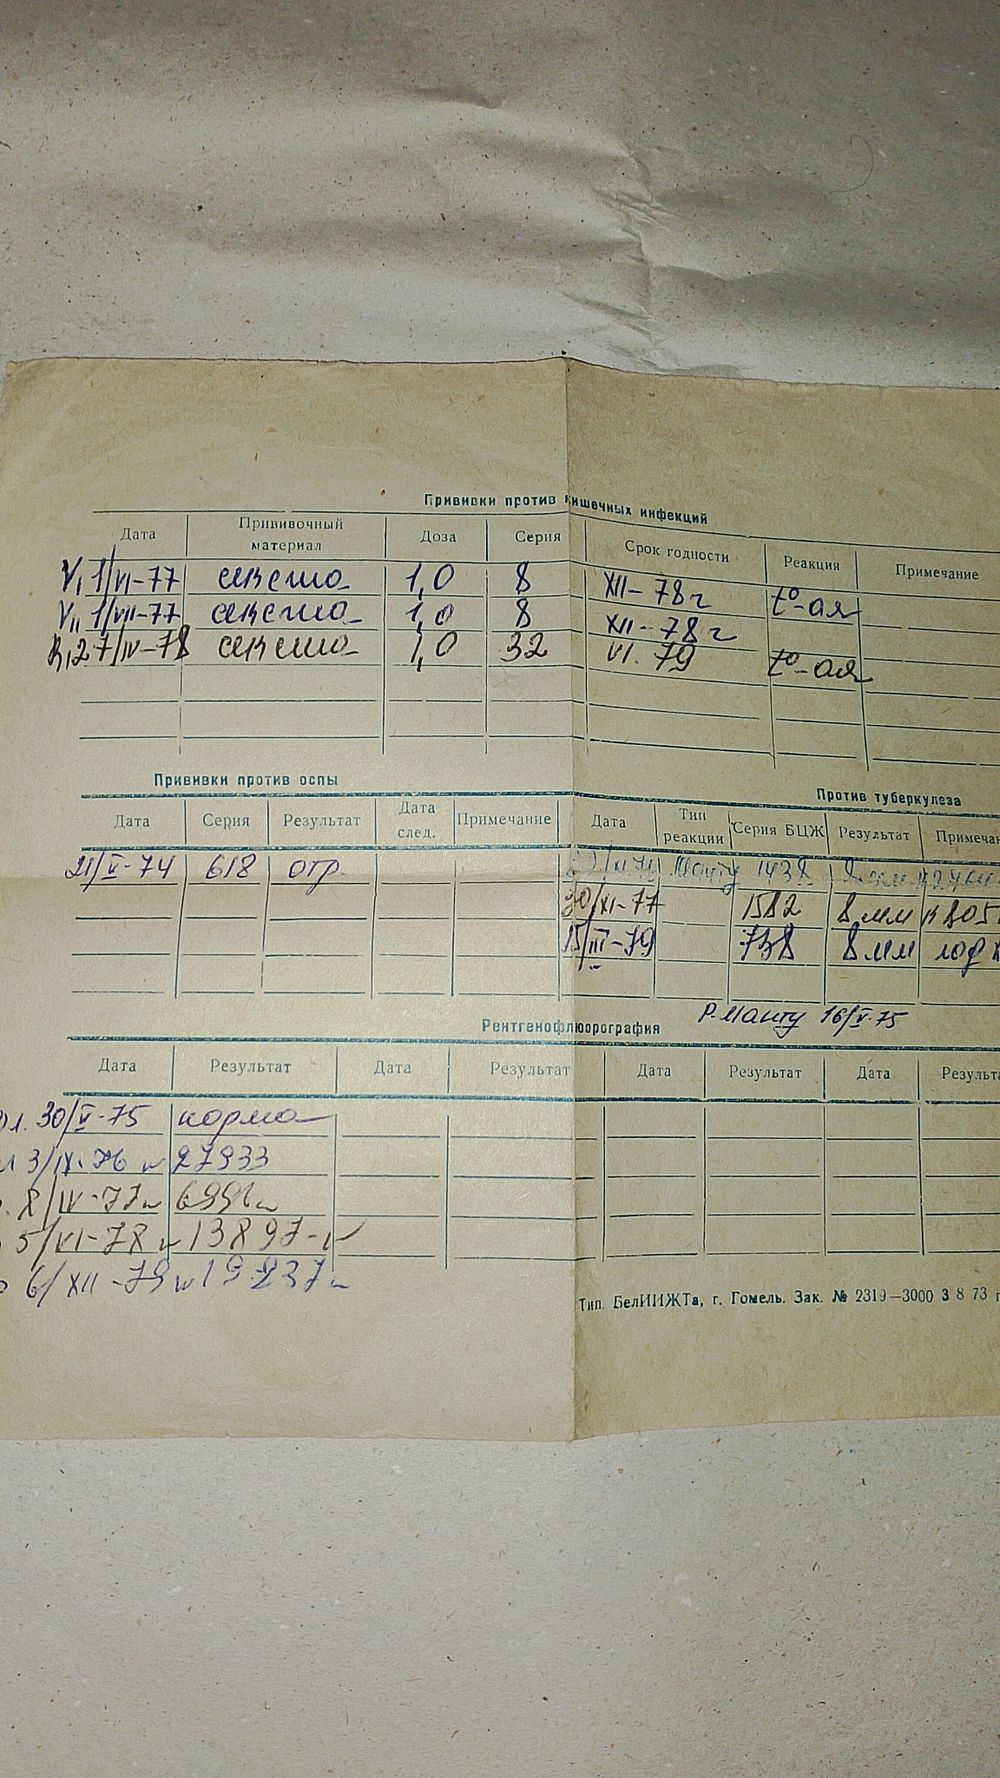 Прививки против кишечных инфекций
Дата Прививочный материал Доза Серия Срок годности Реакция Примечание
V₁ 1/VI-77 1,0 8 XII-78г t°-ая
V₁₁ 1/VII-77 1,0 8 XII-78г
R₁ 27/IV-78 1,0 32 VI.79 t°-ая
Прививки против оспы
Дата Серия Результат Дата след. Примечание
21/V-74 618 отр.
Против туберкулеза
Дата Тип реакции Серия БЦЖ Результат Примечан
Манту 1438
30/XI-77 1582 8 мм
15/III-79 738 8 мм
Р. Манту 16/V-75
Рентгенофлюорография
Дата Результат Дата Результат Дата Результат Дата Результа
30/V-75 норма
3/IX-76 27933
8/IV-77
5/VI-78 13897
6/XII-79 19237
Тип. БелИИЖТа, г. Гомель. Зак. № 2319—3000 3 8 73 г